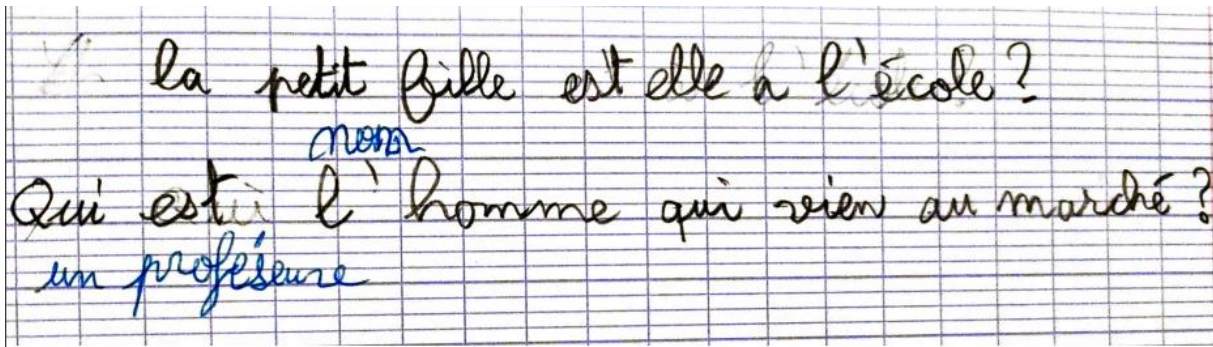 la petit fille est elle a l'école?
nom
Qui est l'homme qui vien au marché?
un proféseure